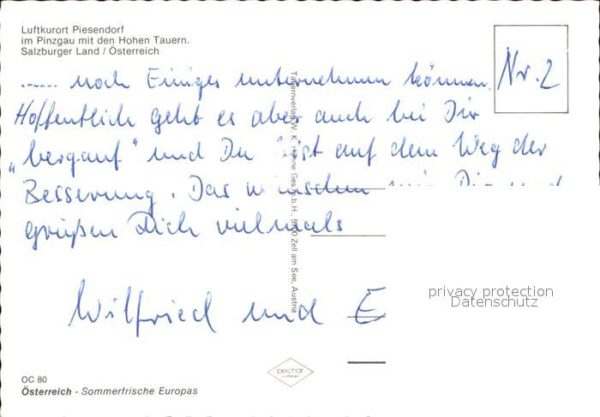 Luftkurort Piesendorf
im Pinzgau mit den Hohen Tauern.
Salzburger Land / Österreich
...... noch Einiges unternehmen können.
Nr. 2
Hoffentlich geht es aber auch bei Dir
„bergauf" und Du bist auf dem Weg der
Besserung. Das wünschen wir Dir und
grüßen Dich vielmals
Wilfried und E
privacy protection
Datenschutz
OC 80
Österreich - Sommerfrische Europas